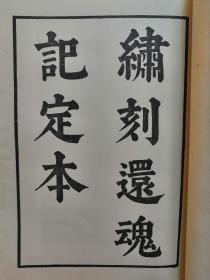 繡刻還魂
記定本